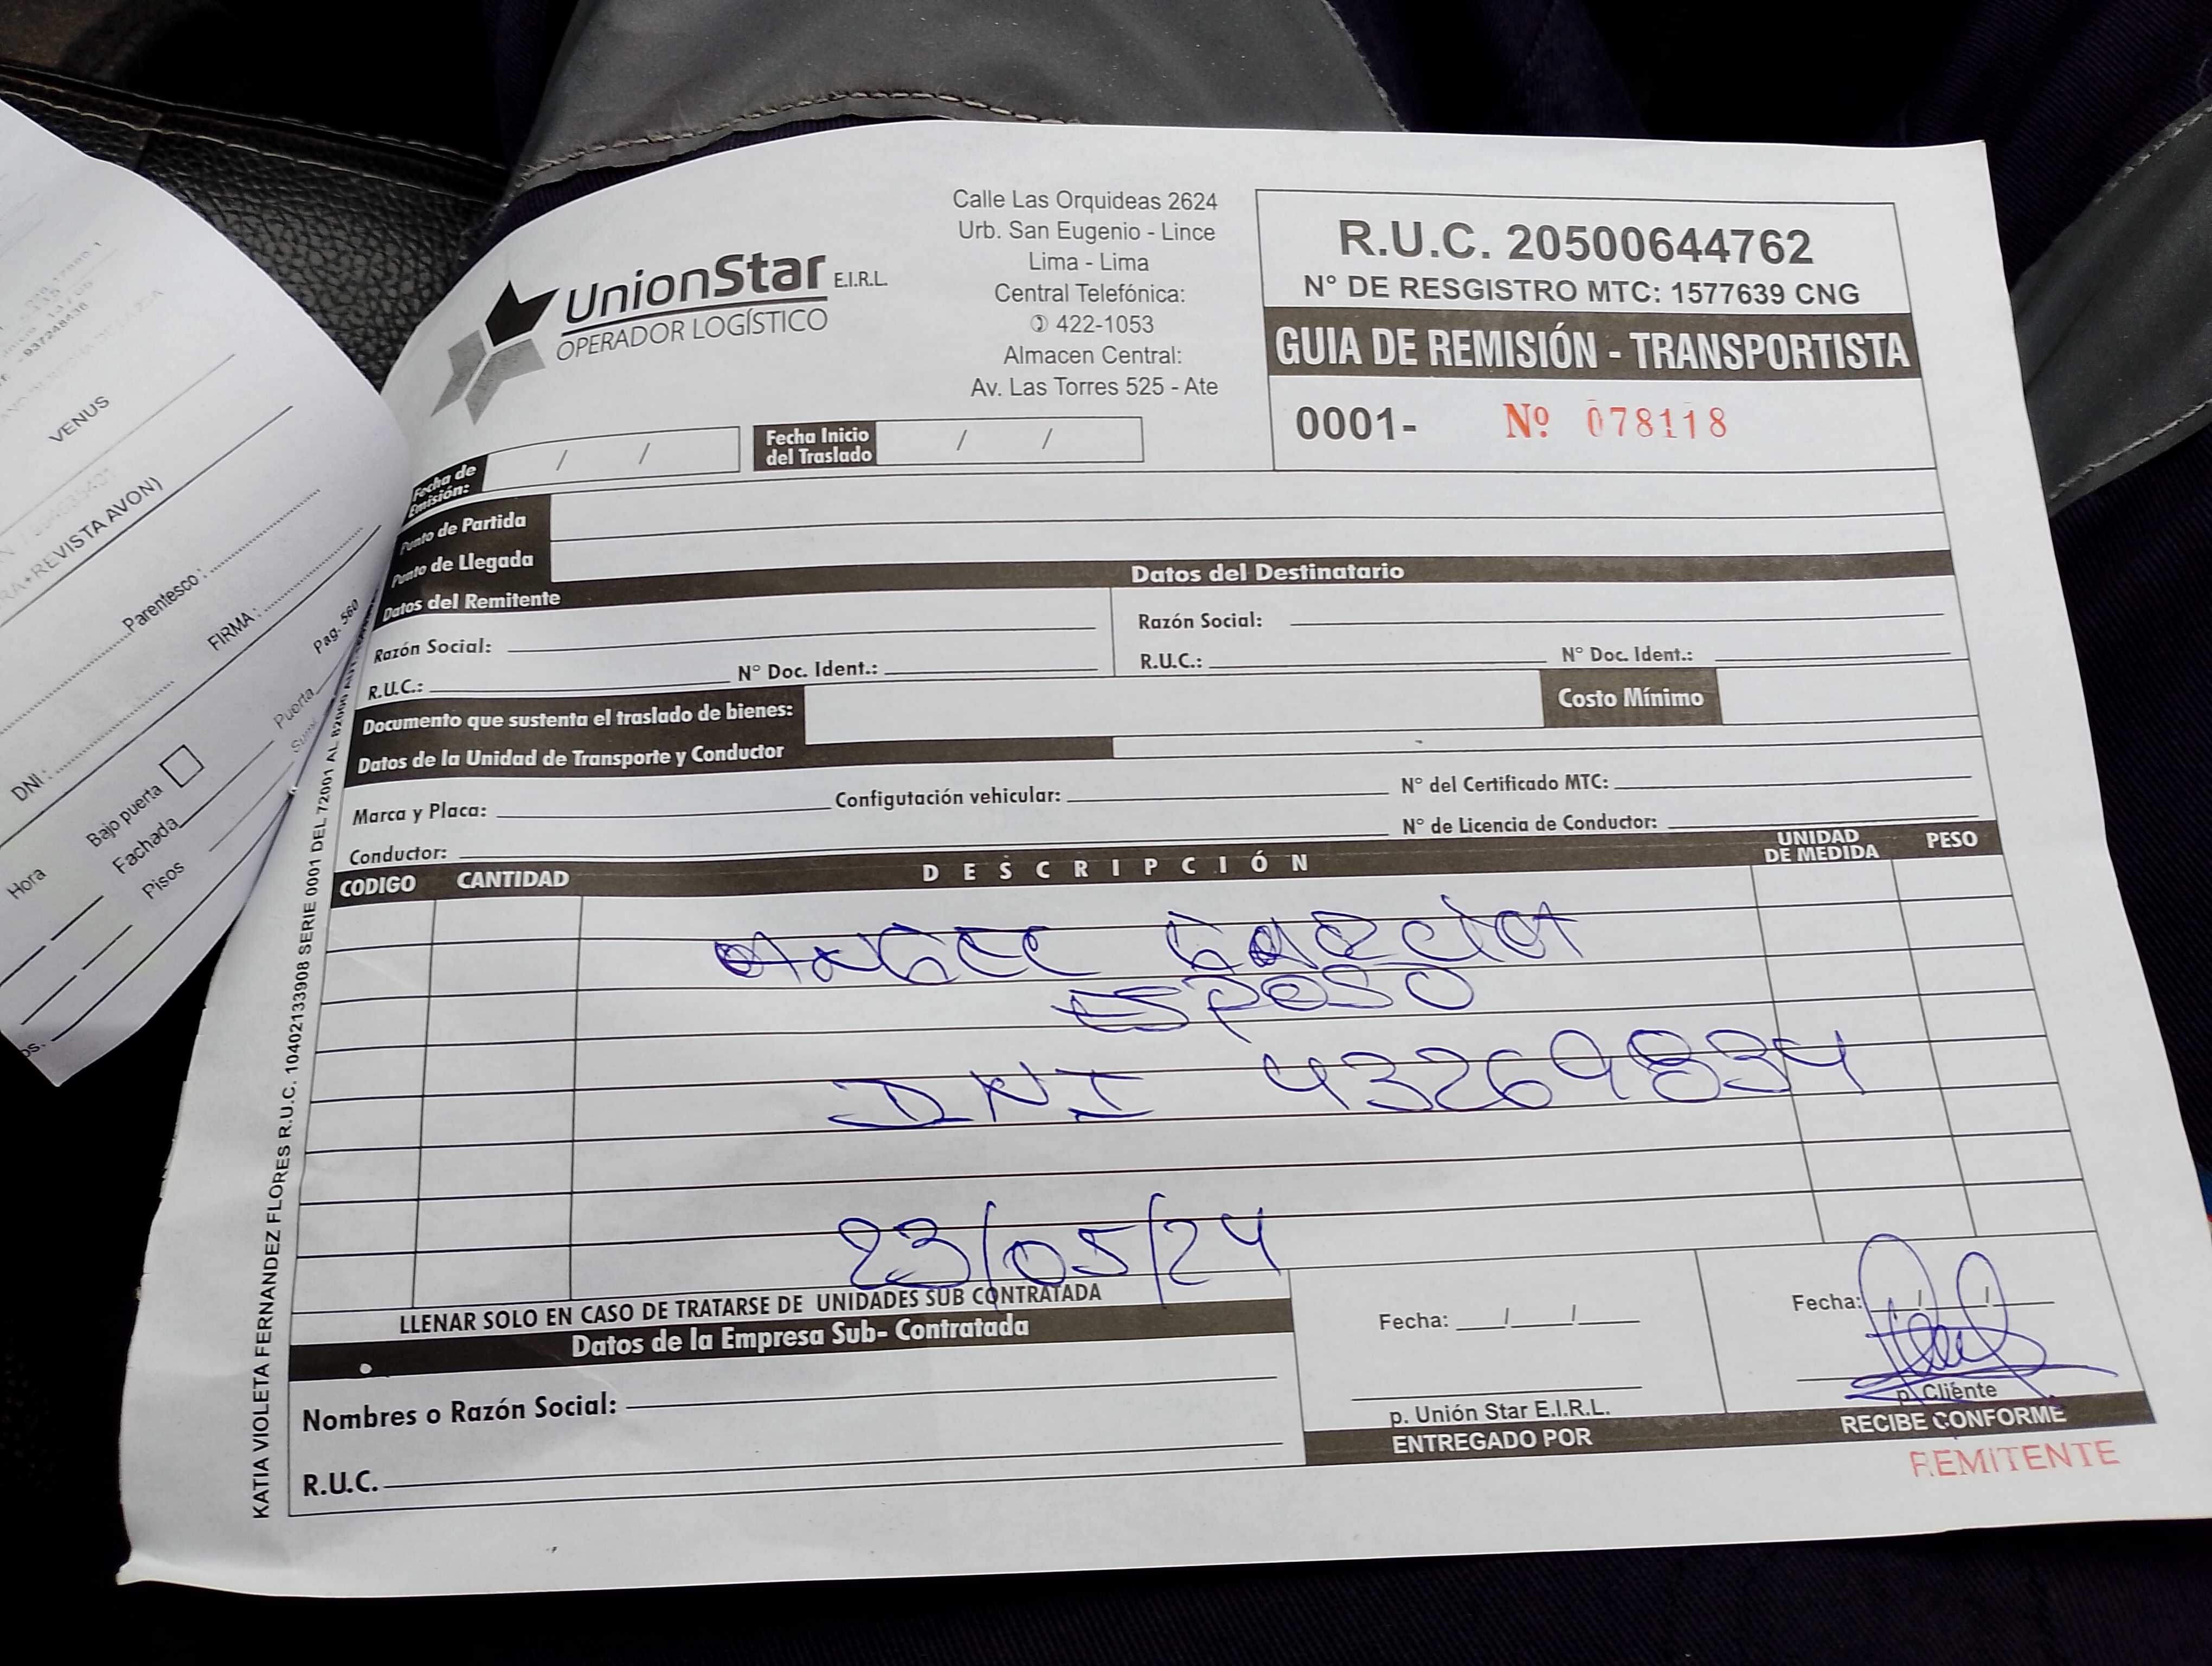 UnionStar E.I.R.L.
OPERADOR LOGÍSTICO
Calle Las Orquideas 2624
Urb. San Eugenio - Lince
Lima - Lima
Central Telefónica:
422-1053
Almacen Central:
Av. Las Torres 525 - Ate
R.U.C. 20500644762
N° DE RESGISTRO MTC: 1577639 CNG
GUIA DE REMISIÓN - TRANSPORTISTA
0001- Nº 078118
Fecha de Emisión: / /
Fecha Inicio del Traslado / /
Punto de Partida
Punto de Llegada
Datos del Remitente
Datos del Destinatario
Razón Social:
Razón Social:
R.U.C.: N° Doc. Ident.:
R.U.C.: N° Doc. Ident.:
Documento que sustenta el traslado de bienes:
Costo Mínimo
Datos de la Unidad de Transporte y Conductor
Marca y Placa: Configutación vehicular: N° del Certificado MTC:
Conductor: N° de Licencia de Conductor:
CODIGO CANTIDAD DESCRIPCIÓN UNIDAD DE MEDIDA PESO
ANGEL GARCIA
ESPOSO
DNI 43269834
23/05/24
LLENAR SOLO EN CASO DE TRATARSE DE UNIDADES SUB CONTRATADA
Datos de la Empresa Sub- Contratada
Nombres o Razón Social:
R.U.C.
Fecha: / /
p. Unión Star E.I.R.L.
ENTREGADO POR
Fecha: / /
p. Cliente
RECIBE CONFORME
REMITENTE
KATIA VIOLETA FERNANDEZ FLORES R.U.C. 10402133908 SERIE 0001 DEL 72001 AL 82000
VENUS
RA+REVISTA AVON)
Parentesco :
FIRMA :
Pag. 560
DNI :
Bajo puerta
Puerta
Hora
Fachada
Pisos